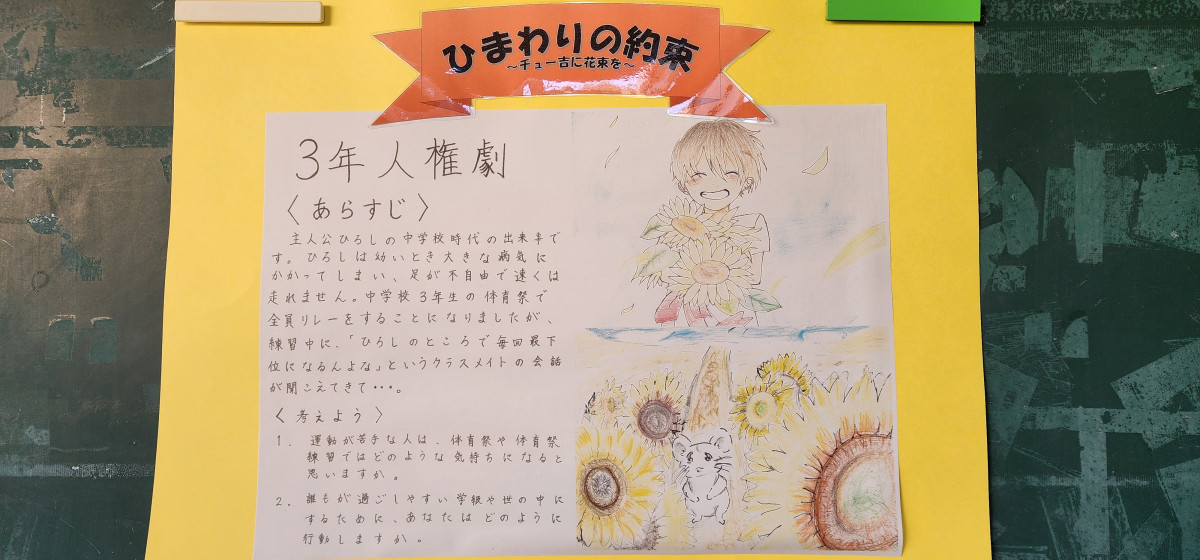 ひまわりの約束
～チュー吉に花束を～
3年人権劇
〈あらすじ〉
主人公ひろしの中学校時代の出来事で
す。ひろしは幼いとき大きな病気に
かかってしまい、足が不自由で速くは
走れません。中学校3年生の体育祭で
全員リレーをすることになりましたが、
練習中に、「ひろしのところで毎回最下
位になるんよな」というクラスメイトの会話
が聞こえてきて・・・。
〈考えよう〉
1. 運動が苦手な人は、体育祭や体育祭
練習ではどのような気持ちになると
思いますか。
2. 誰もが過ごしやすい学級や世の中に
するために、あなたはどのように
行動しますか。